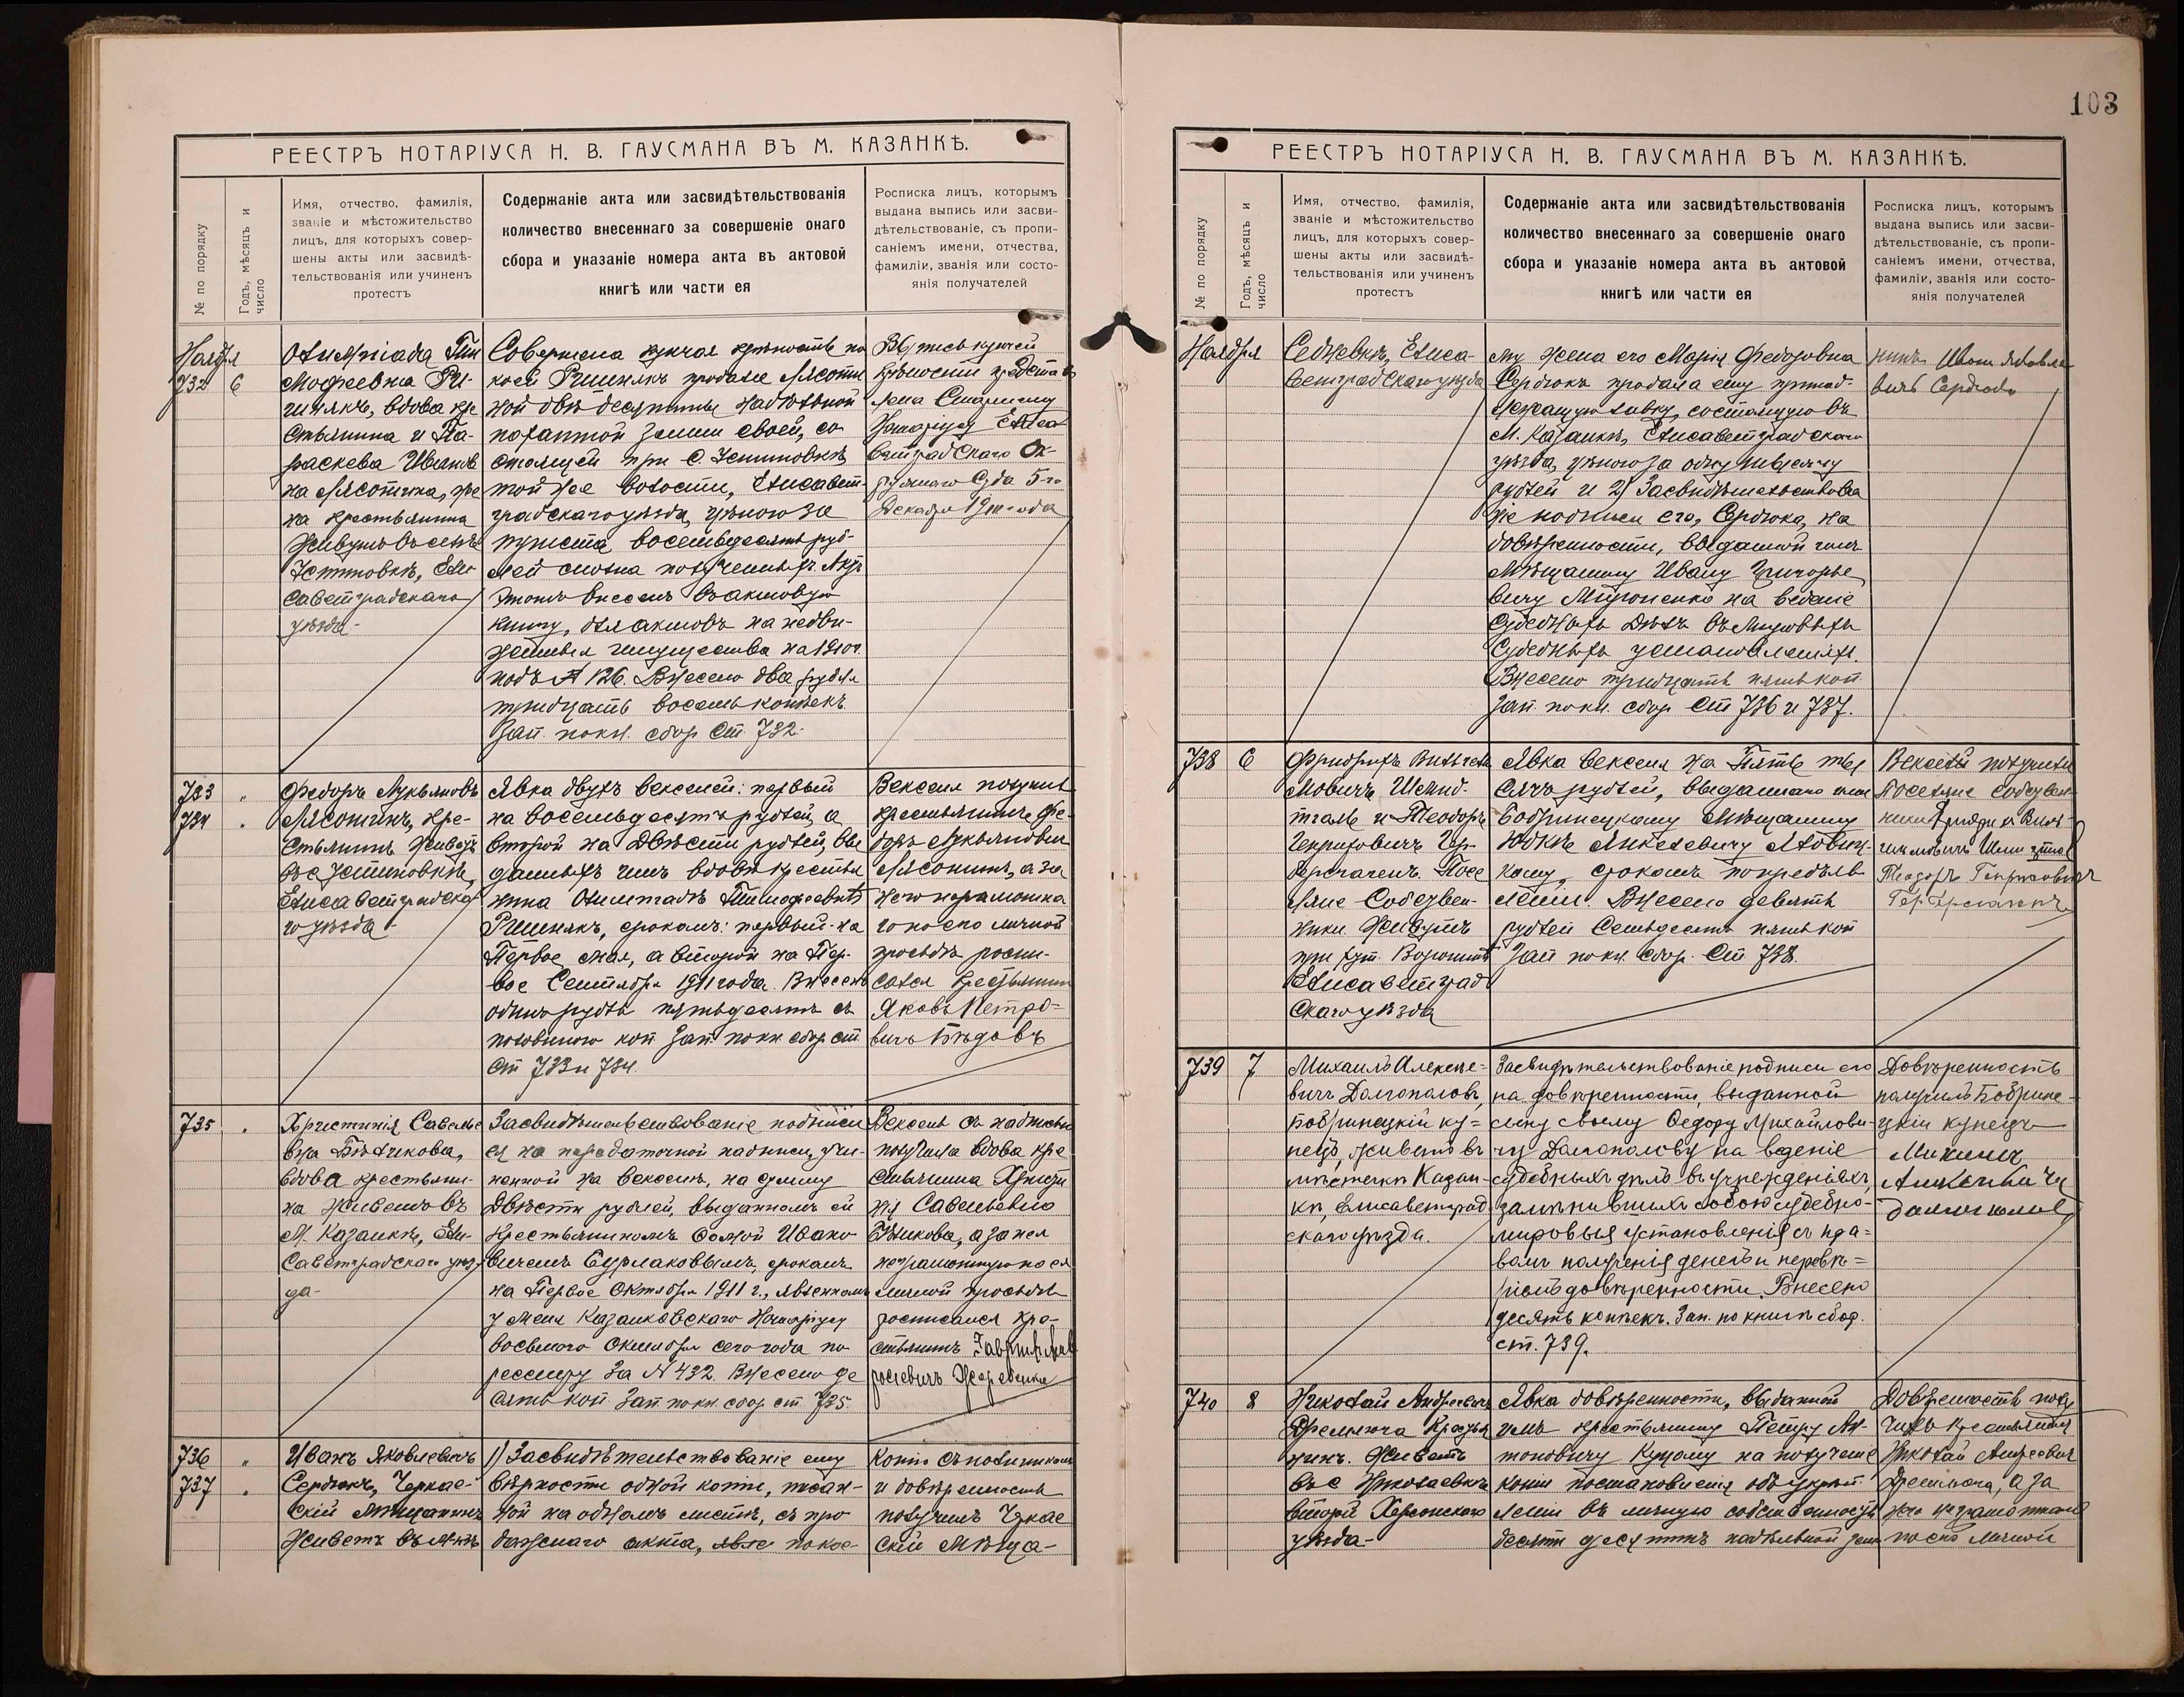 103
РЕЕСТРЪ НОТАРІУСА Н. В. ГАУСМАНА ВЪ М. КАЗАНКѢ.
№ по порядку
Годъ, мѣсяцъ и
число
Имя, отчество, фамилія,
званіе и мѣстожительство
лицъ, для которыхъ совер-
шены акты или засвидѣ-
тельствованія или учиненъ
протестъ
Содержаніе акта или засвидѣтельствованія
количество внесеннаго за совершеніе онаго
сбора и указаніе номера акта въ актовой
книгѣ или части ея
Росписка лицъ, которымъ
выдана выпись или засви-
дѣтельствованіе, съ пропи-
саніемъ имени, отчества,
фамиліи, званія или состо-
янія получателей
Ноября
732 6
Олимпіада Тим
мофеевна Ри-
шнякъ, вдова кре
стьянина и Па-
раскева Иванов
на Лясотина, же
на крестьянина
Живутъ въ селѣ
Устиновкѣ, Ели
саветградскаго
уѣзда
Совершена купчая крѣпость по
коей Ришнякъ продала Лясоти
ной двѣ десятины надѣльной
пахатной земли своей, со
стоящей при с. Устиновкѣ
той же волости, Елисавет-
градскаго уѣзда, цѣною за
триста восемьдесятъ руб-
лей сполна полученныхъ. Актъ
этотъ внесенъ въ актовую
книгу, для актовъ на недви-
жимыя имущества на 1910 г.
подъ № 126. Внесено два рубля
тридцать восемь копѣекъ
Зап. по кн. сбор. ст 732.
Выпись купчей
крѣпости представ
лена Старшему
Нотаріусу Елиса
ветградскаго Ок-
ружнаго Суда 5-го
Декабря 1910 года
733 "
734 "
Федоръ Лукьяновъ
Лясотинъ, кре-
стьянинъ Живетъ
въ с. Устиновкѣ,
Елисаветградска
го уѣзда
Явка двухъ векселей: первый
на восемьдесятъ рублей, а
второй на двѣсти рублей, вы
данныхъ имъ вдовѣ крестья
нина Олимпіадѣ Тимофеевнѣ
Ришнякъ, срокомъ: первый на
Первое мая, а второй на Пер-
вое Сентября 1911 года. Внесено
одинъ рубль пятьдесятъ съ
половиною коп Зап по кн сбор ст
ст 733 и 734
Векселя получилъ
крестьянинъ Фе-
доръ Лукьяновичъ
Лясотинъ, а за
него неграмотна
го по его личной
просьбѣ роспи-
сался крестьянинъ
Яковъ Петро-
вичъ Бѣдовъ
735 "
Христинія Савелье
вна Бѣликова,
вдова крестьяни-
на Живетъ въ
М. Казанкѣ, Ели-
саветградскаго уѣз
да
Засвидѣтельствованіе подписи
ея на передаточной надписи, учи-
ненной на векселѣ, на сумму
двѣсти рублей, выданномъ ей
крестьяниномъ Фомой Ивано
вичемъ Бурлаковымъ, срокомъ
на Первое Октября 1911 г., явленномъ
у меня Казанковскаго Нотаріуса
восьмого Октября сего года по
реестру за № 432. Внесено де
сять коп. Зап по кн. сбор ст 735.
Вексель съ надписью
получила вдова кре
стьянина Христи
нія Савельевна
Бѣликова, а за нея
неграмотную по ея
личной просьбѣ
росписался кре-
стьянинъ Гавріилъ
736 "
737 "
Иванъ Яковлевичъ
Сердюкъ, Черкас-
скій мѣщанинъ
Живетъ въ мѣст
1) Засвидѣтельствованіе ему
вѣрности одной копіи, писан-
ной на одномъ листѣ, съ про
дажнаго акта, по кое-
Копію съ подлинникомъ
и довѣренность
получилъ Черкас
скій Мѣща-
РЕЕСТРЪ НОТАРІУСА Н. В. ГАУСМАНА ВЪ М. КАЗАНКѢ.
№ по порядку
Годъ, мѣсяцъ и
число
Имя, отчество, фамилія,
званіе и мѣстожительство
лицъ, для которыхъ совер-
шены акты или засвидѣ-
тельствованія или учиненъ
протестъ
Содержаніе акта или засвидѣтельствованія
количество внесеннаго за совершеніе онаго
сбора и указаніе номера акта въ актовой
книгѣ или части ея
Росписка лицъ, которымъ
выдана выпись или засви-
дѣтельствованіе, съ пропи-
саніемъ имени, отчества,
фамиліи, званія или состо-
янія получателей
Ноября
Елиса-
ветградскаго уѣзда
му жена его Марія Федоровна
Сердюкъ продала ему принад-
лежащую лавку, состоящую въ
М. Казанкѣ, Елисаветградскаго
уѣзда, цѣною за одну тысячу
рублей и 2) Засвидѣтельствова
ніе подписи его, Сердюка, на
довѣренности, выданной имъ
мѣщанину Ивану Григорье
вичу Мироненко на веденіе
судебныхъ дѣлъ въ мировыхъ
судебныхъ установленіяхъ.
Внесено тридцать пять коп
Зап. по кн. сбор ст 736 и 737.
нинъ Иванъ Яковле
вичъ Сердюкъ
738 6
Фридрихъ Вильгель
мовичъ Шенд-
и Теодоръ
Генриховичъ Гер-
Посе
ляне Собствен-
ники Живутъ
при хут.
Елисаветград
скаго уѣзда
Явка векселя на Пять ты
сячъ рублей, выданнаго ими
Бобринецкому мѣщанину
срокомъ по предъяв
леніи. Внесено девять
рублей семьдесятъ пять коп
Зап по кн. сбор. ст 738.
Вексель получили
Поселяне Собствен-
ники Фридрихъ Виль-
гельмовичъ
Теодоръ Генриховичъ
739 7
Михаилъ Алексѣе-
вичъ Долгополовъ,
Бобринецкій ку=
пецъ, живетъ въ
мѣстечкѣ Казан-
кѣ, Елисаветград
скаго уѣзда.
Засвидѣтельствованіе подписи его
на довѣренности, выданной
сыну своему Федору Михайлови-
чу Долгополову на веденіе
судебныхъ дѣлъ въ учрежденіяхъ,
замѣнившихъ собою судебно-
мировыя установленія съ пра=
вомъ полученія денегъ и перевѣ=
рія довѣренности. Внесено
десять копѣекъ. Зап. по книгѣ сбор.
ст. 739.
Довѣренность
получилъ Бобрине-
цкій купецъ
Михаилъ
Алексѣевичъ
Долгополовъ
740 8
Николай Андреевичъ
Кресть
янинъ. Живетъ
въ с Николаевкѣ
второй Херсонскаго
уѣзда
Явка довѣренности, выданной
имъ крестьянину Петру Ан-
тоновичу Куцому на полученіе
копіи постановленія объ укрѣп
леніи въ личную собственность
десяти десятинъ надѣльной земли
Довѣренность полу
чилъ крестьянинъ
Николай Андреевичъ
а за
него неграмотнаго
по его личной